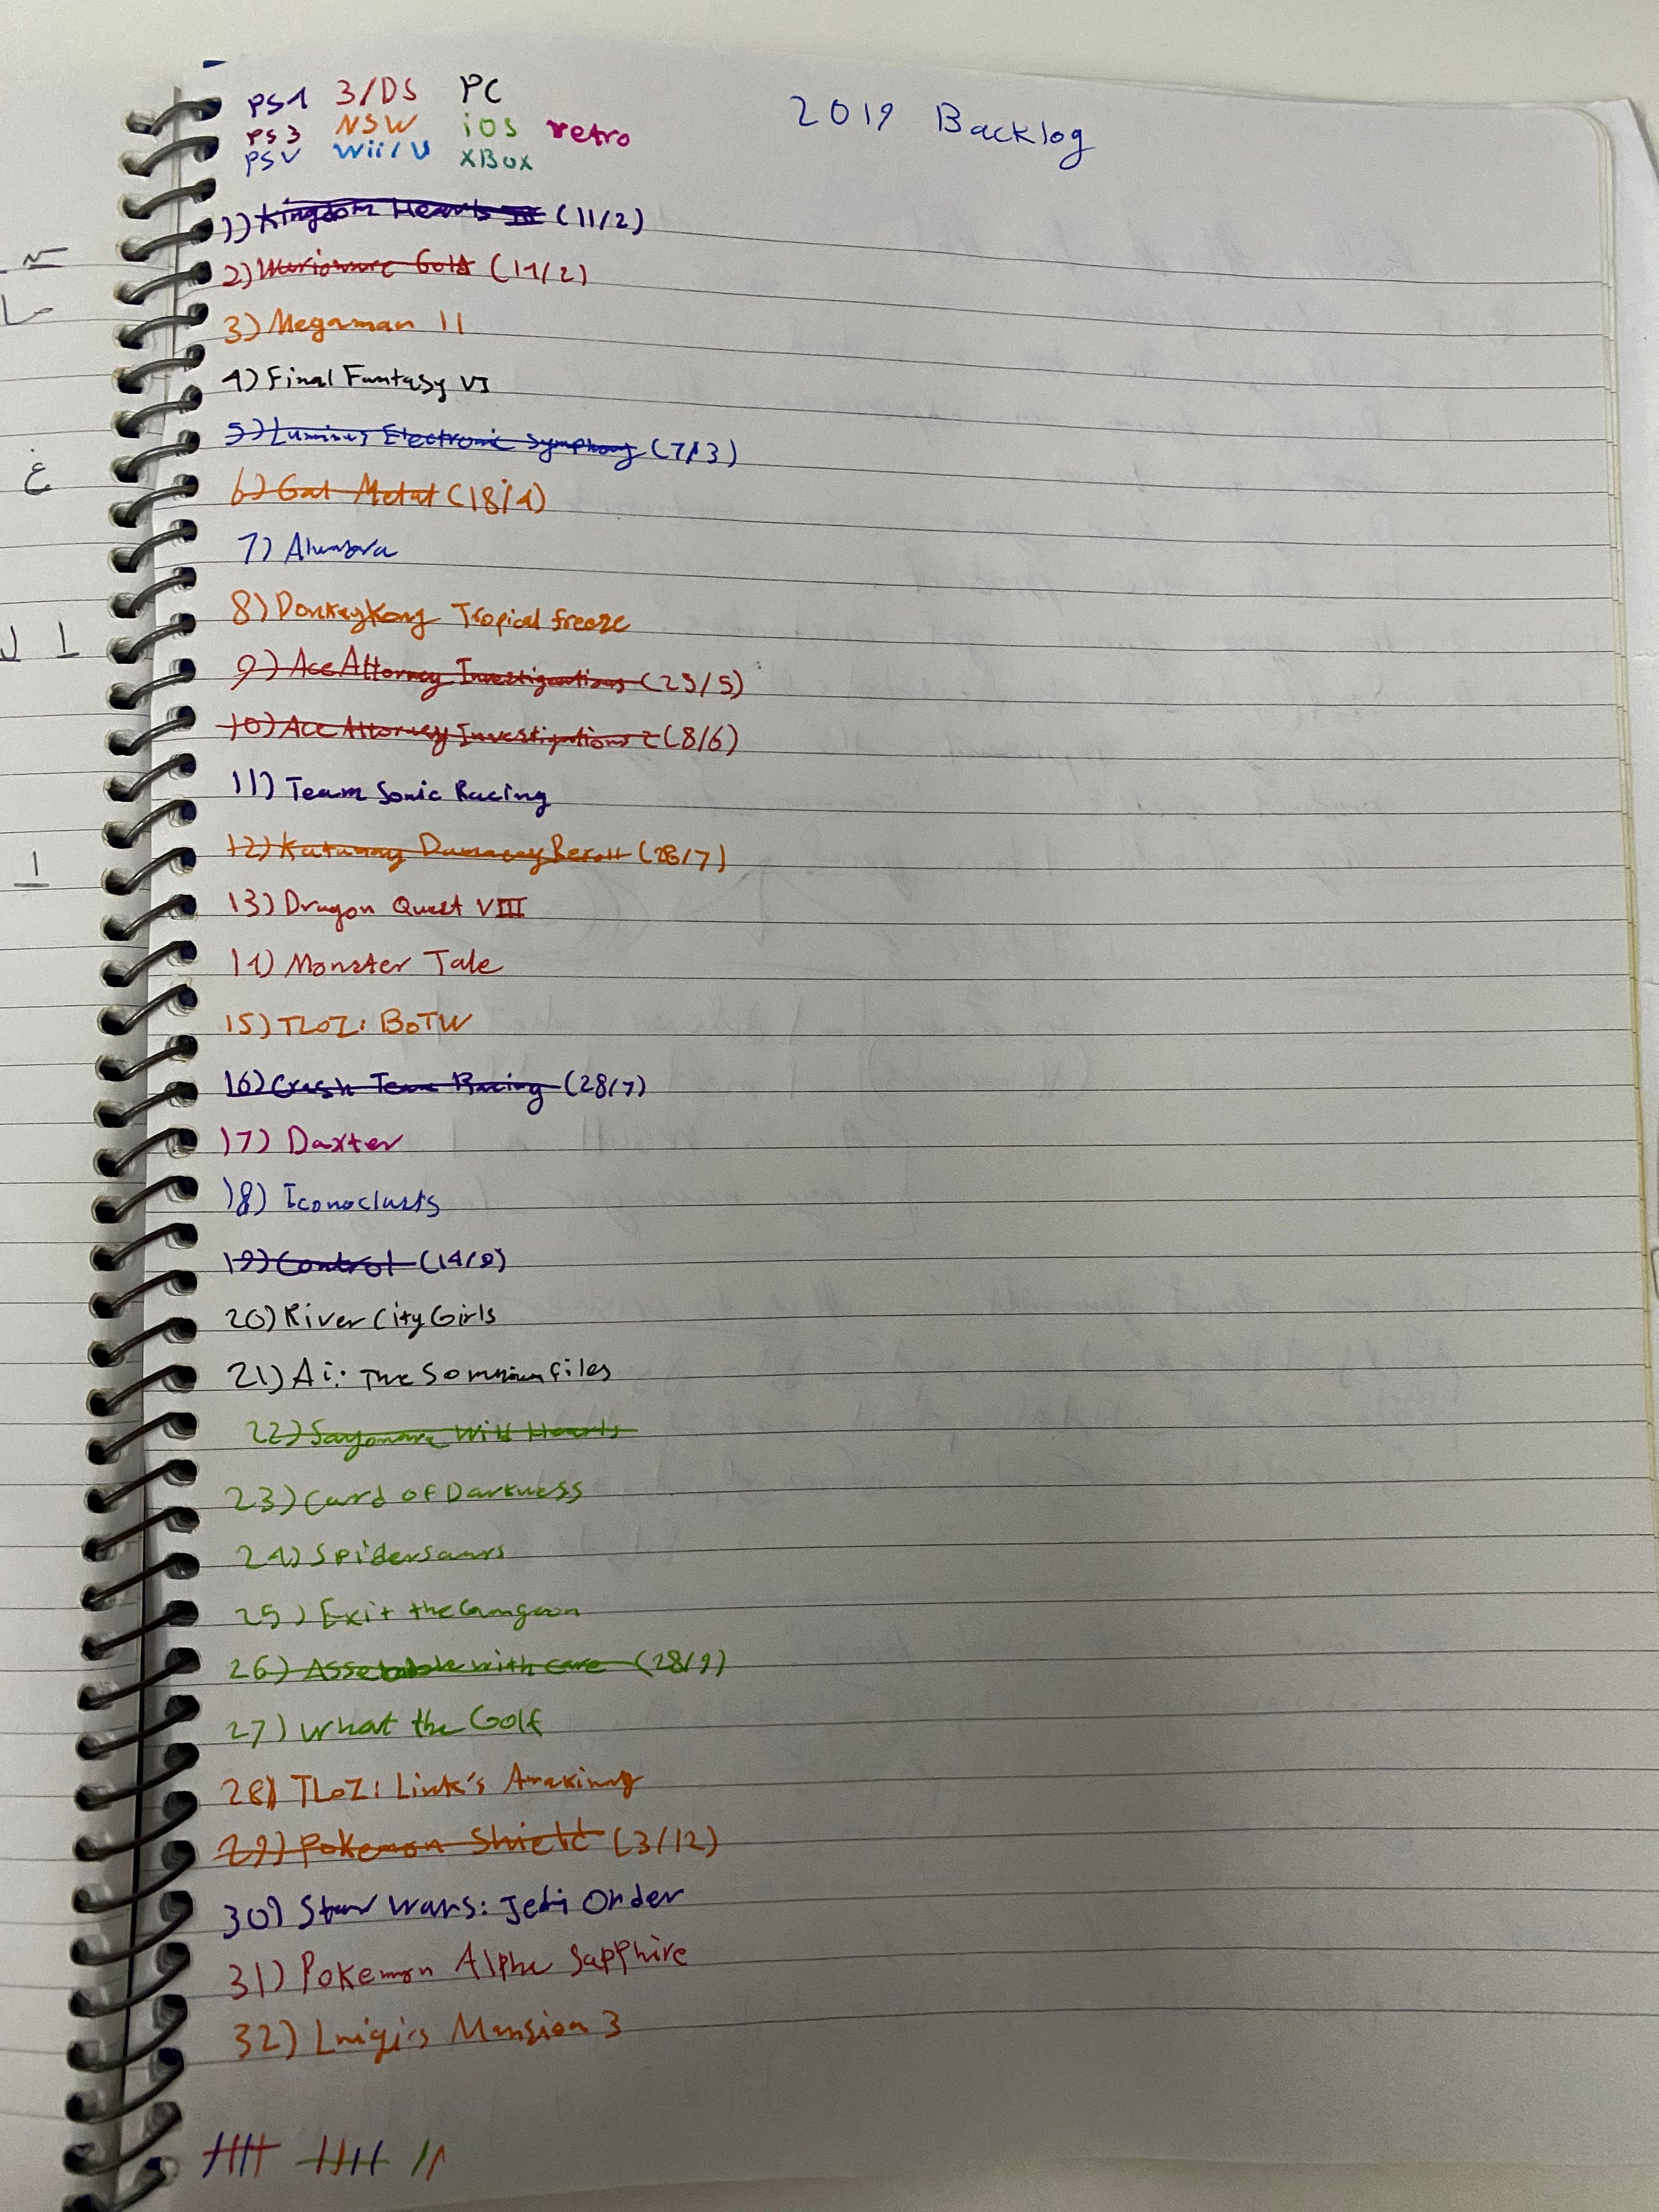 PS4 3/DS PC
PS3 NSW iOS retro
PSV Wii/U XBox
2019 Backlog
1) Kingdom Hearts III (11/2)
2) Warioware Gold (14/2)
3) Megaman 11
4) Final Fantasy VI
5) Lumines Electronic Symphony (7/3)
6) Gal Metal (18/4)
7)
8) Donkey Kong Tropical freeze
9) Ace Attorney Investigations (25/5)
10) Ace Attorney Investigations 2 (8/6)
11) Team Sonic Racing
12) Katamay Damacay Reroll (26/7)
13) Dragon Quest VIII
14) Monster Tale
15) TLOZ: BOTW
16) Crash Team Racing (28/7)
17) Daxter
18) Iconoclasts
19) Control (14/9)
20) River City Girls
21) Ai: The Somnium files
22) Sayonara Wild Hearts
23) Card of Darkness
24) Spidersaurs
25) Exit the Gungeon
26) Assemble with care (28/9)
27) What the Golf
28) TLOZ: Link's Awakining
29) Pokemon Shield (3/12)
30) Star Wars: Jedi Order
31) Pokemon Alpha Sapphire
32) Luigi's Mansion 3